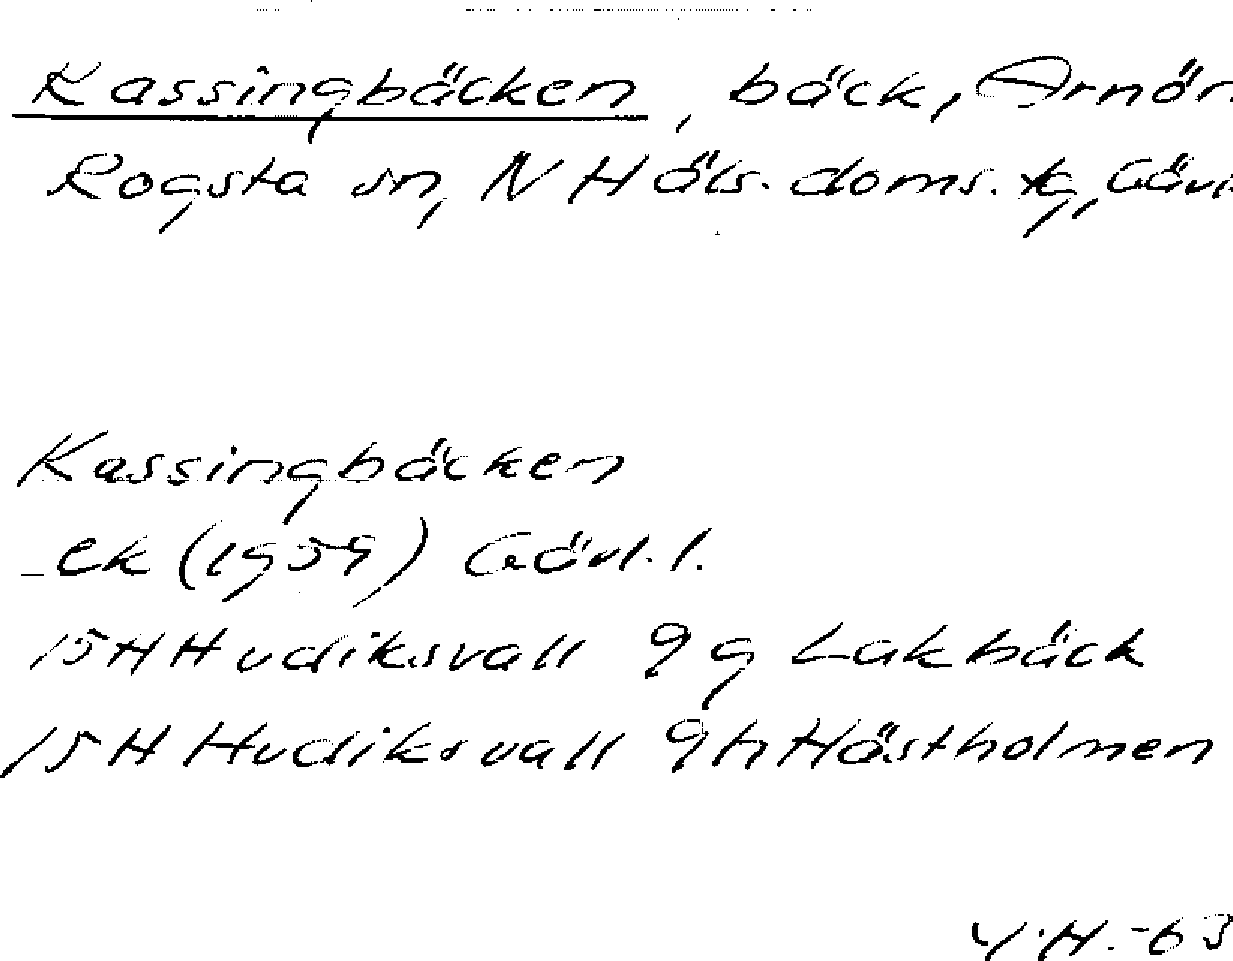 Kassingbäcken, bäck, Arnör.
Rogsta sn, N Häls. doms. tg, Gävl.
Kassingbäcken
ek (1959) Gävl. l.
15H Hudiksvall 9g Lakbäck
15H Hudiksvall 9h Hästholmen
Y.H.-63